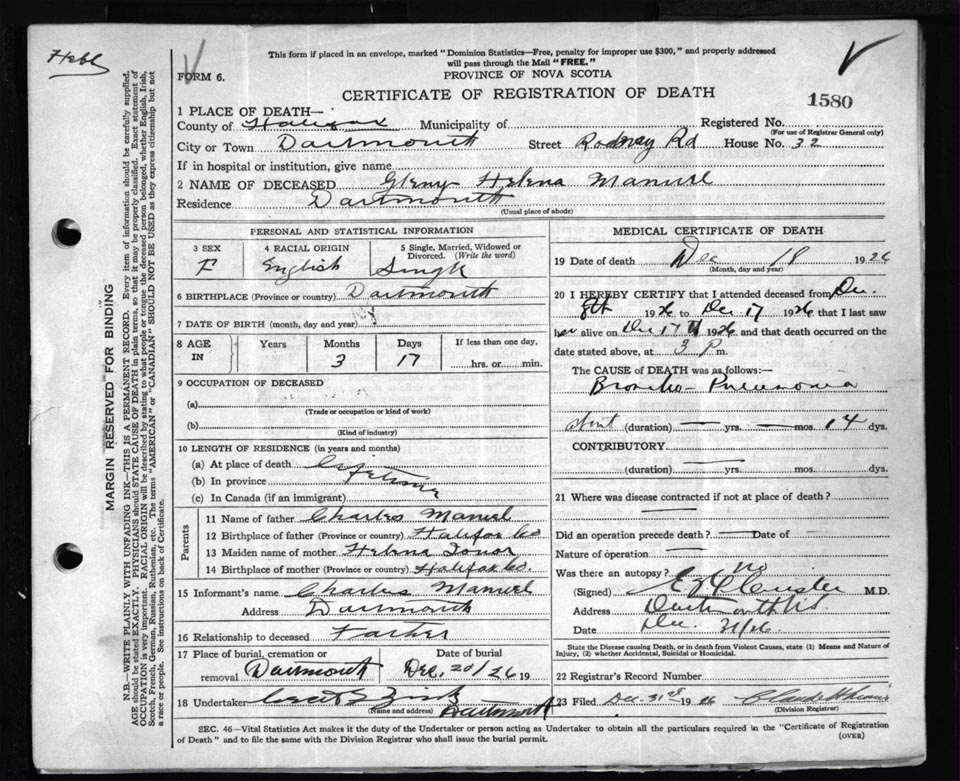 Hebl
This form if placed in an envelope, marked "Dominion Statistics—Free, penalty for improper use $300," and properly addressed
will pass through the Mail "FREE."
FORM 6.
PROVINCE OF NOVA SCOTIA
CERTIFICATE OF REGISTRATION OF DEATH
1580
1 PLACE OF DEATH—
County of Halifax Municipality of Registered No.
(For use of Registrar General only)
City or Town Dartmouth Street Rodney Rd House No. 32
If in hospital or institution, give name
2 NAME OF DECEASED Helena Manuel
Residence Dartmouth
(Usual place of abode)
PERSONAL AND STATISTICAL INFORMATION
3 SEX 4 RACIAL ORIGIN 5 Single, Married, Widowed or Divorced. (Write the word)
F English Single
6 BIRTHPLACE (Province or country) Dartmouth
7 DATE OF BIRTH (month, day and year)
8 AGE IN Years Months Days If less than one day,
3 17 hrs. or min.
9 OCCUPATION OF DECEASED
(a)
(Trade or occupation or kind of work)
(b)
(Kind of industry)
10 LENGTH OF RESIDENCE (in years and months)
(a) At place of death
(b) In province Lifetime
(c) In Canada (if an immigrant)
Parents
11 Name of father Charles Manuel
12 Birthplace of father (Province or country) Halifax Co
13 Maiden name of mother Helena
14 Birthplace of mother (Province or country) Halifax Co.
15 Informant's name Charles Manuel
Address Dartmouth
16 Relationship to deceased Father
17 Place of burial, cremation or removal Dartmouth
Date of burial Dec. 20/26 19
18 Undertaker
(Name and address) Dartmouth
MEDICAL CERTIFICATE OF DEATH
19 Date of death Dec 18 1926
(Month, day and year)
20 I HEREBY CERTIFY that I attended deceased from Dec.
8th 1926 to Dec 17 1926 that I last saw
her alive on Dec 17 1926 and that death occurred on
date stated above, at 3 P m.
The CAUSE of DEATH was as follows:—
Broncho-Pneumonia
(duration) — yrs. — mos. 14 dys.
CONTRIBUTORY
(duration) yrs. mos. dys.
21 Where was disease contracted if not at place of death?
Did an operation precede death? Date of
Nature of operation
Was there an autopsy? no
(Signed) M.D.
Address Dartmouth
Date Dec. 21/26
State the Disease causing Death, or in death from Violent Causes, state (1) Means and Nature of
Injury, (2) whether Accidental, Suicidal or Homicidal.
22 Records Record Number
23 Filed Dec 31st 19 26
(Division Registrar)
SEC. 46—Vital Statistics Act makes it the duty of the Undertaker or person acting as Undertaker to obtain all the particulars required in the "Certificate of Registration
of Death" and to file the same with the Division Registrar who shall issue the burial permit.
(OVER)
MARGIN RESERVED FOR BINDING
N.B.—WRITE PLAINLY WITH UNFADING INK—THIS IS A PERMANENT RECORD. Every item of information should be carefully supplied.
AGE should be stated EXACTLY. PHYSICIANS should STATE CAUSE OF DEATH in plain terms, so that it may be properly classified. Exact statement of
OCCUPATION is very important. RACIAL ORIGIN will be described by stating to what people or tongue the deceased person belonged, whether English, Irish,
Scotch, French, German, Russian, Ruthenian, etc. The terms "AMERICAN" or "CANADIAN" SHOULD NOT BE USED as they express citizenship but not
a race or people. See instructions on back of Certificate.